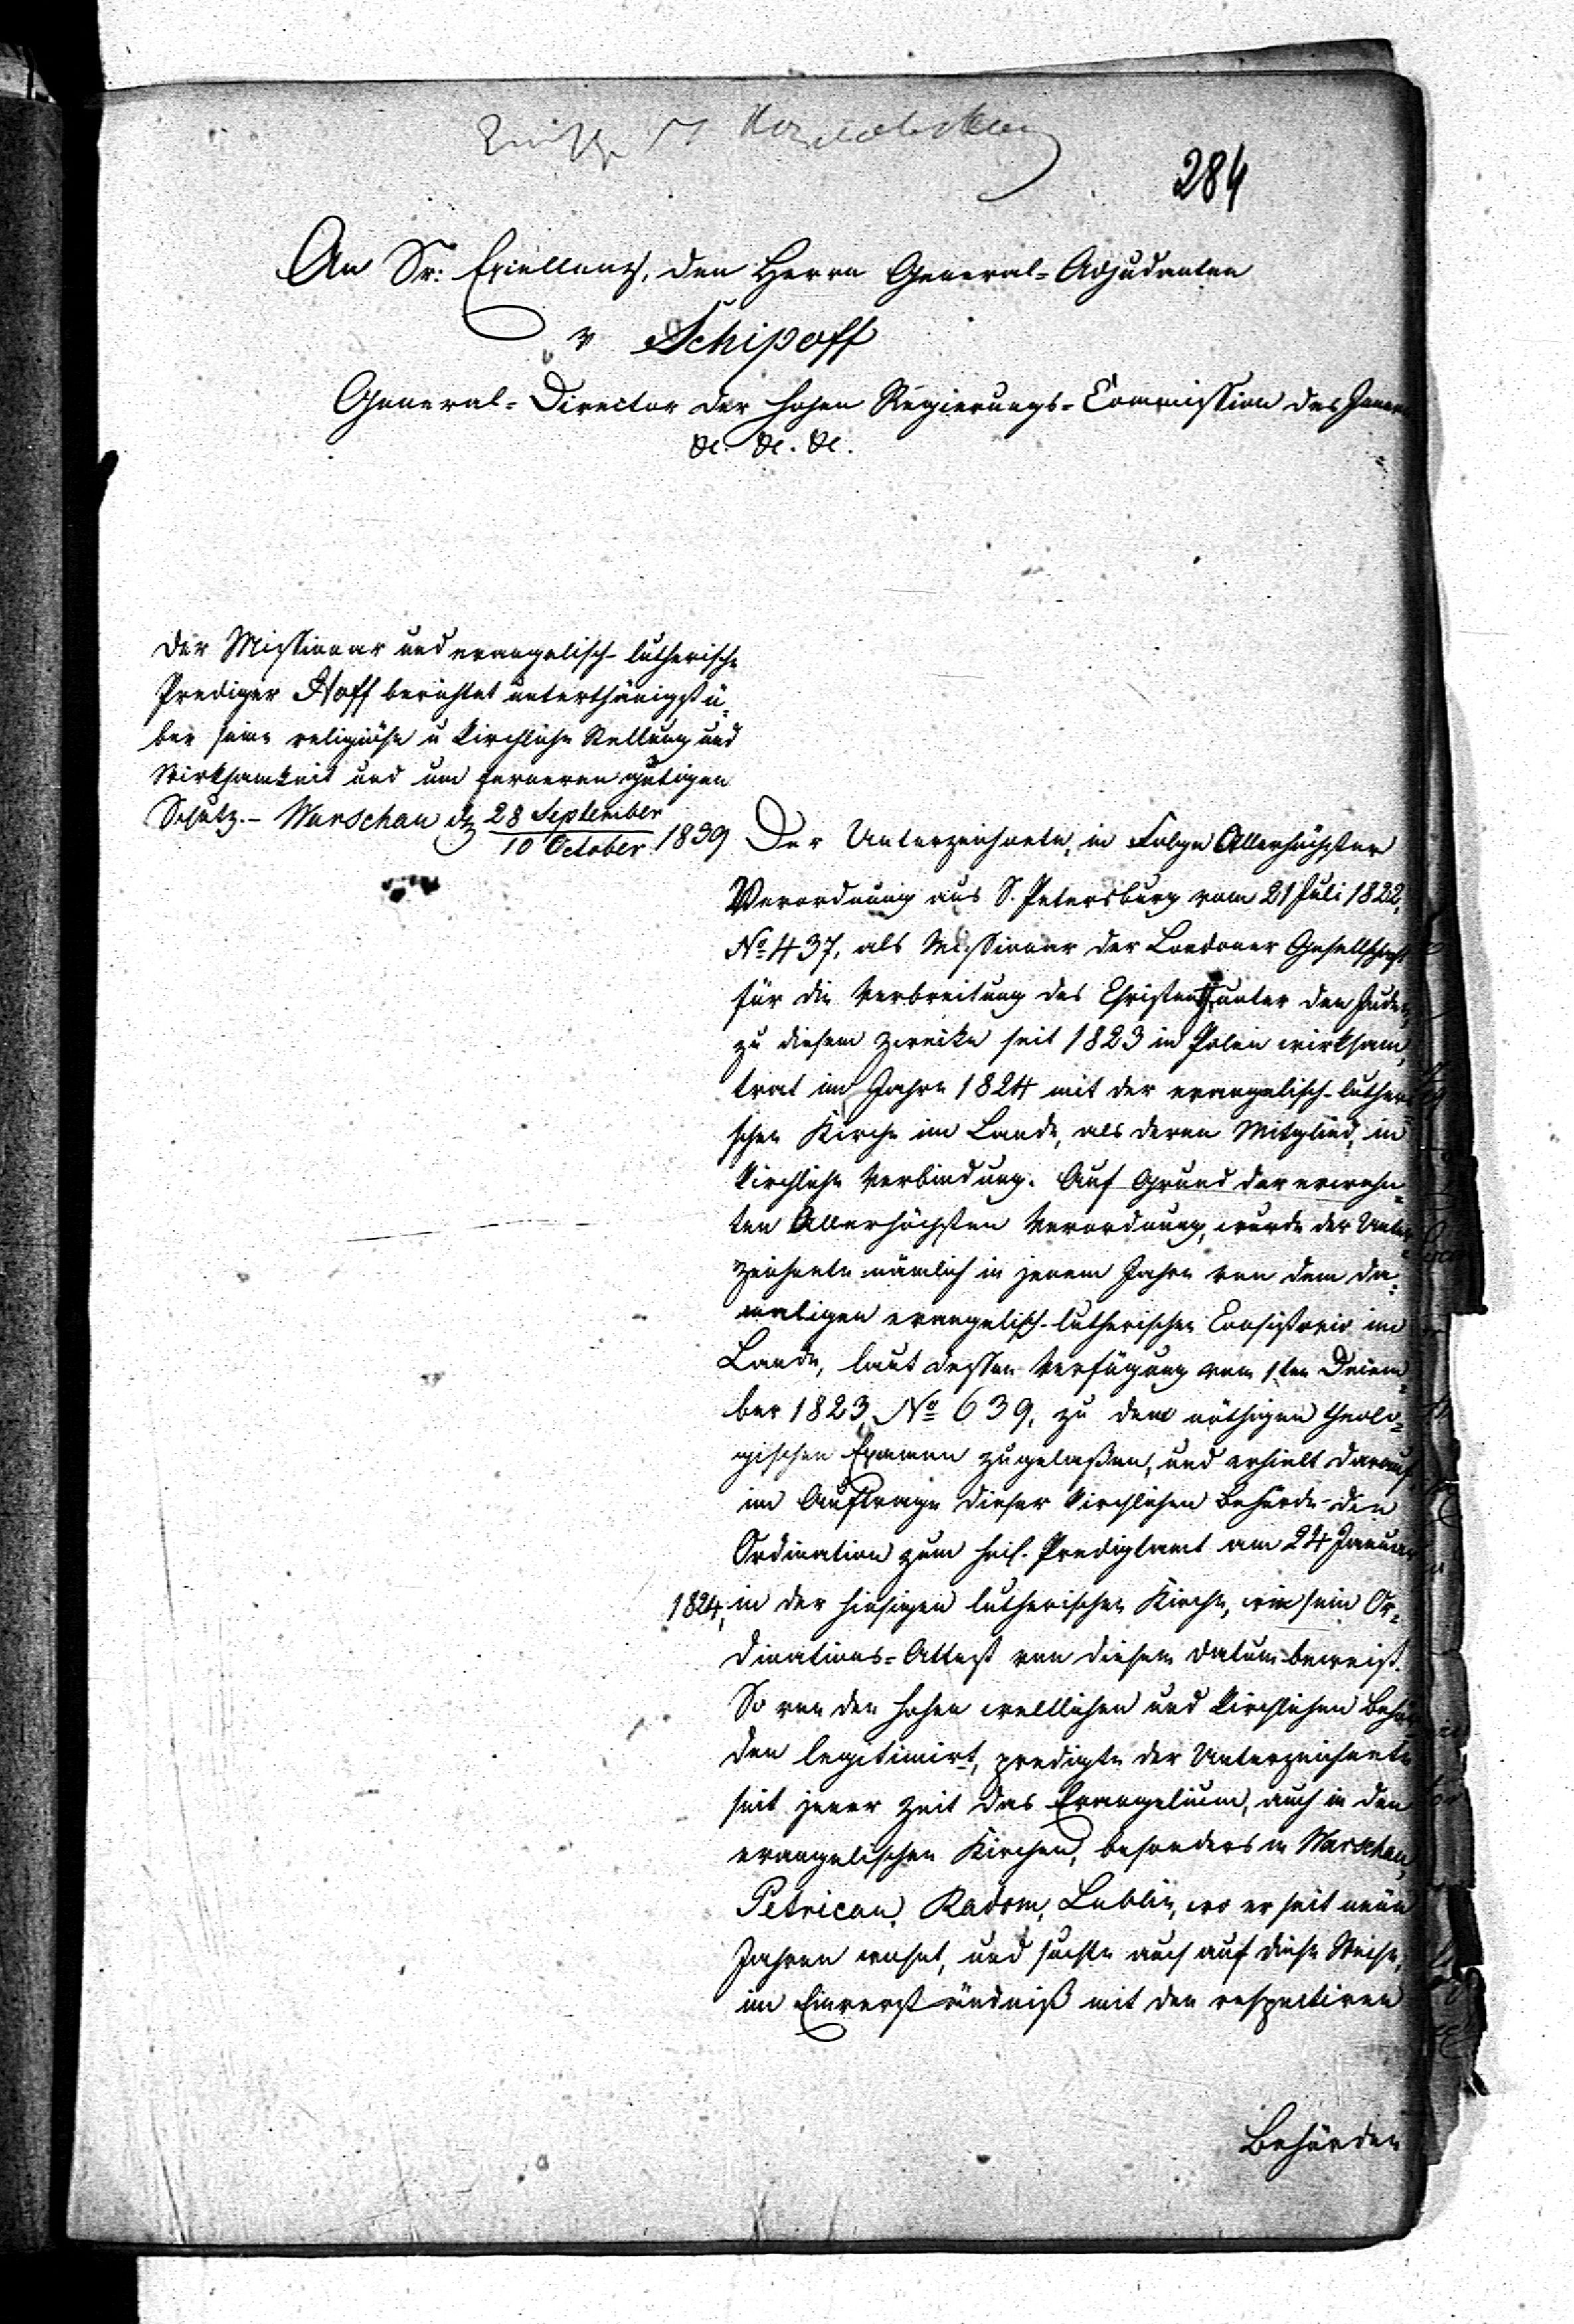 284
An Sr: Excellenz, den Herrn General-Adjudanten
v Schipoff
General-Director der hohen Regierungs-Commission des Innern
&c. &c. &c.
Der Missionar und evangelisch-lutherische
Prediger Hoff berichtet unterthänigst ü-
ber seine religiöse u kirchliche Stellung und
Wirksamkeit und um ferneren gütigen
Schutz.- Warschau d 28 September
10 October 1839
Der Unterzeichnete, in Folge Allerhöchster
Verordnung aus S. Petersburg vom 21 Juli 1822,
No 437, als Missionar der Londoner Gesellschaft
für die Verbreitung des Christenth. unter den Juden,
zu diesem Zwecke seit 1823 in Polen wirksam,
trat im Jahre 1824 mit der evangelisch-lutheri
schen Kirche im Lande, als deren Mitglied, in
kirchliche Verbindung. Auf Grund der erwehn-
ten Allerhöchsten Verordnung, wurde der Unter-
zeichnete nämlich in jenem Jahre von dem da-
maligen evangelisch-lutherischen Consistorio im
Lande, laut dessen Verfügung vom 1ten Decem-
ber 1823, No 639, zu dem nöthigen theolo-
gischen Examen zugelaßen, und erhielt darauf
im Auftrage dieser kirchlichen Behörde die
Ordination zum heil. Predigtamt am 24 Januar
1824, in der hiesigen lutherischen Kirche, wie sein Or-
dinations-Attest von diesem Datum beweist.
So von den hohen weltlichen und kirchlichen Behör
den legitimirt, predigte der Unterzeichnete
seit jener Zeit das Evangelium, auch in den
evangelischen Kirchen, besonders in Warschau,
Petricau, Radom, Lublin, wo er seit neun
Jahren wohnt, und suchte auch auf diese Weise,
im Einverständniß mit den respectiven
Behörden